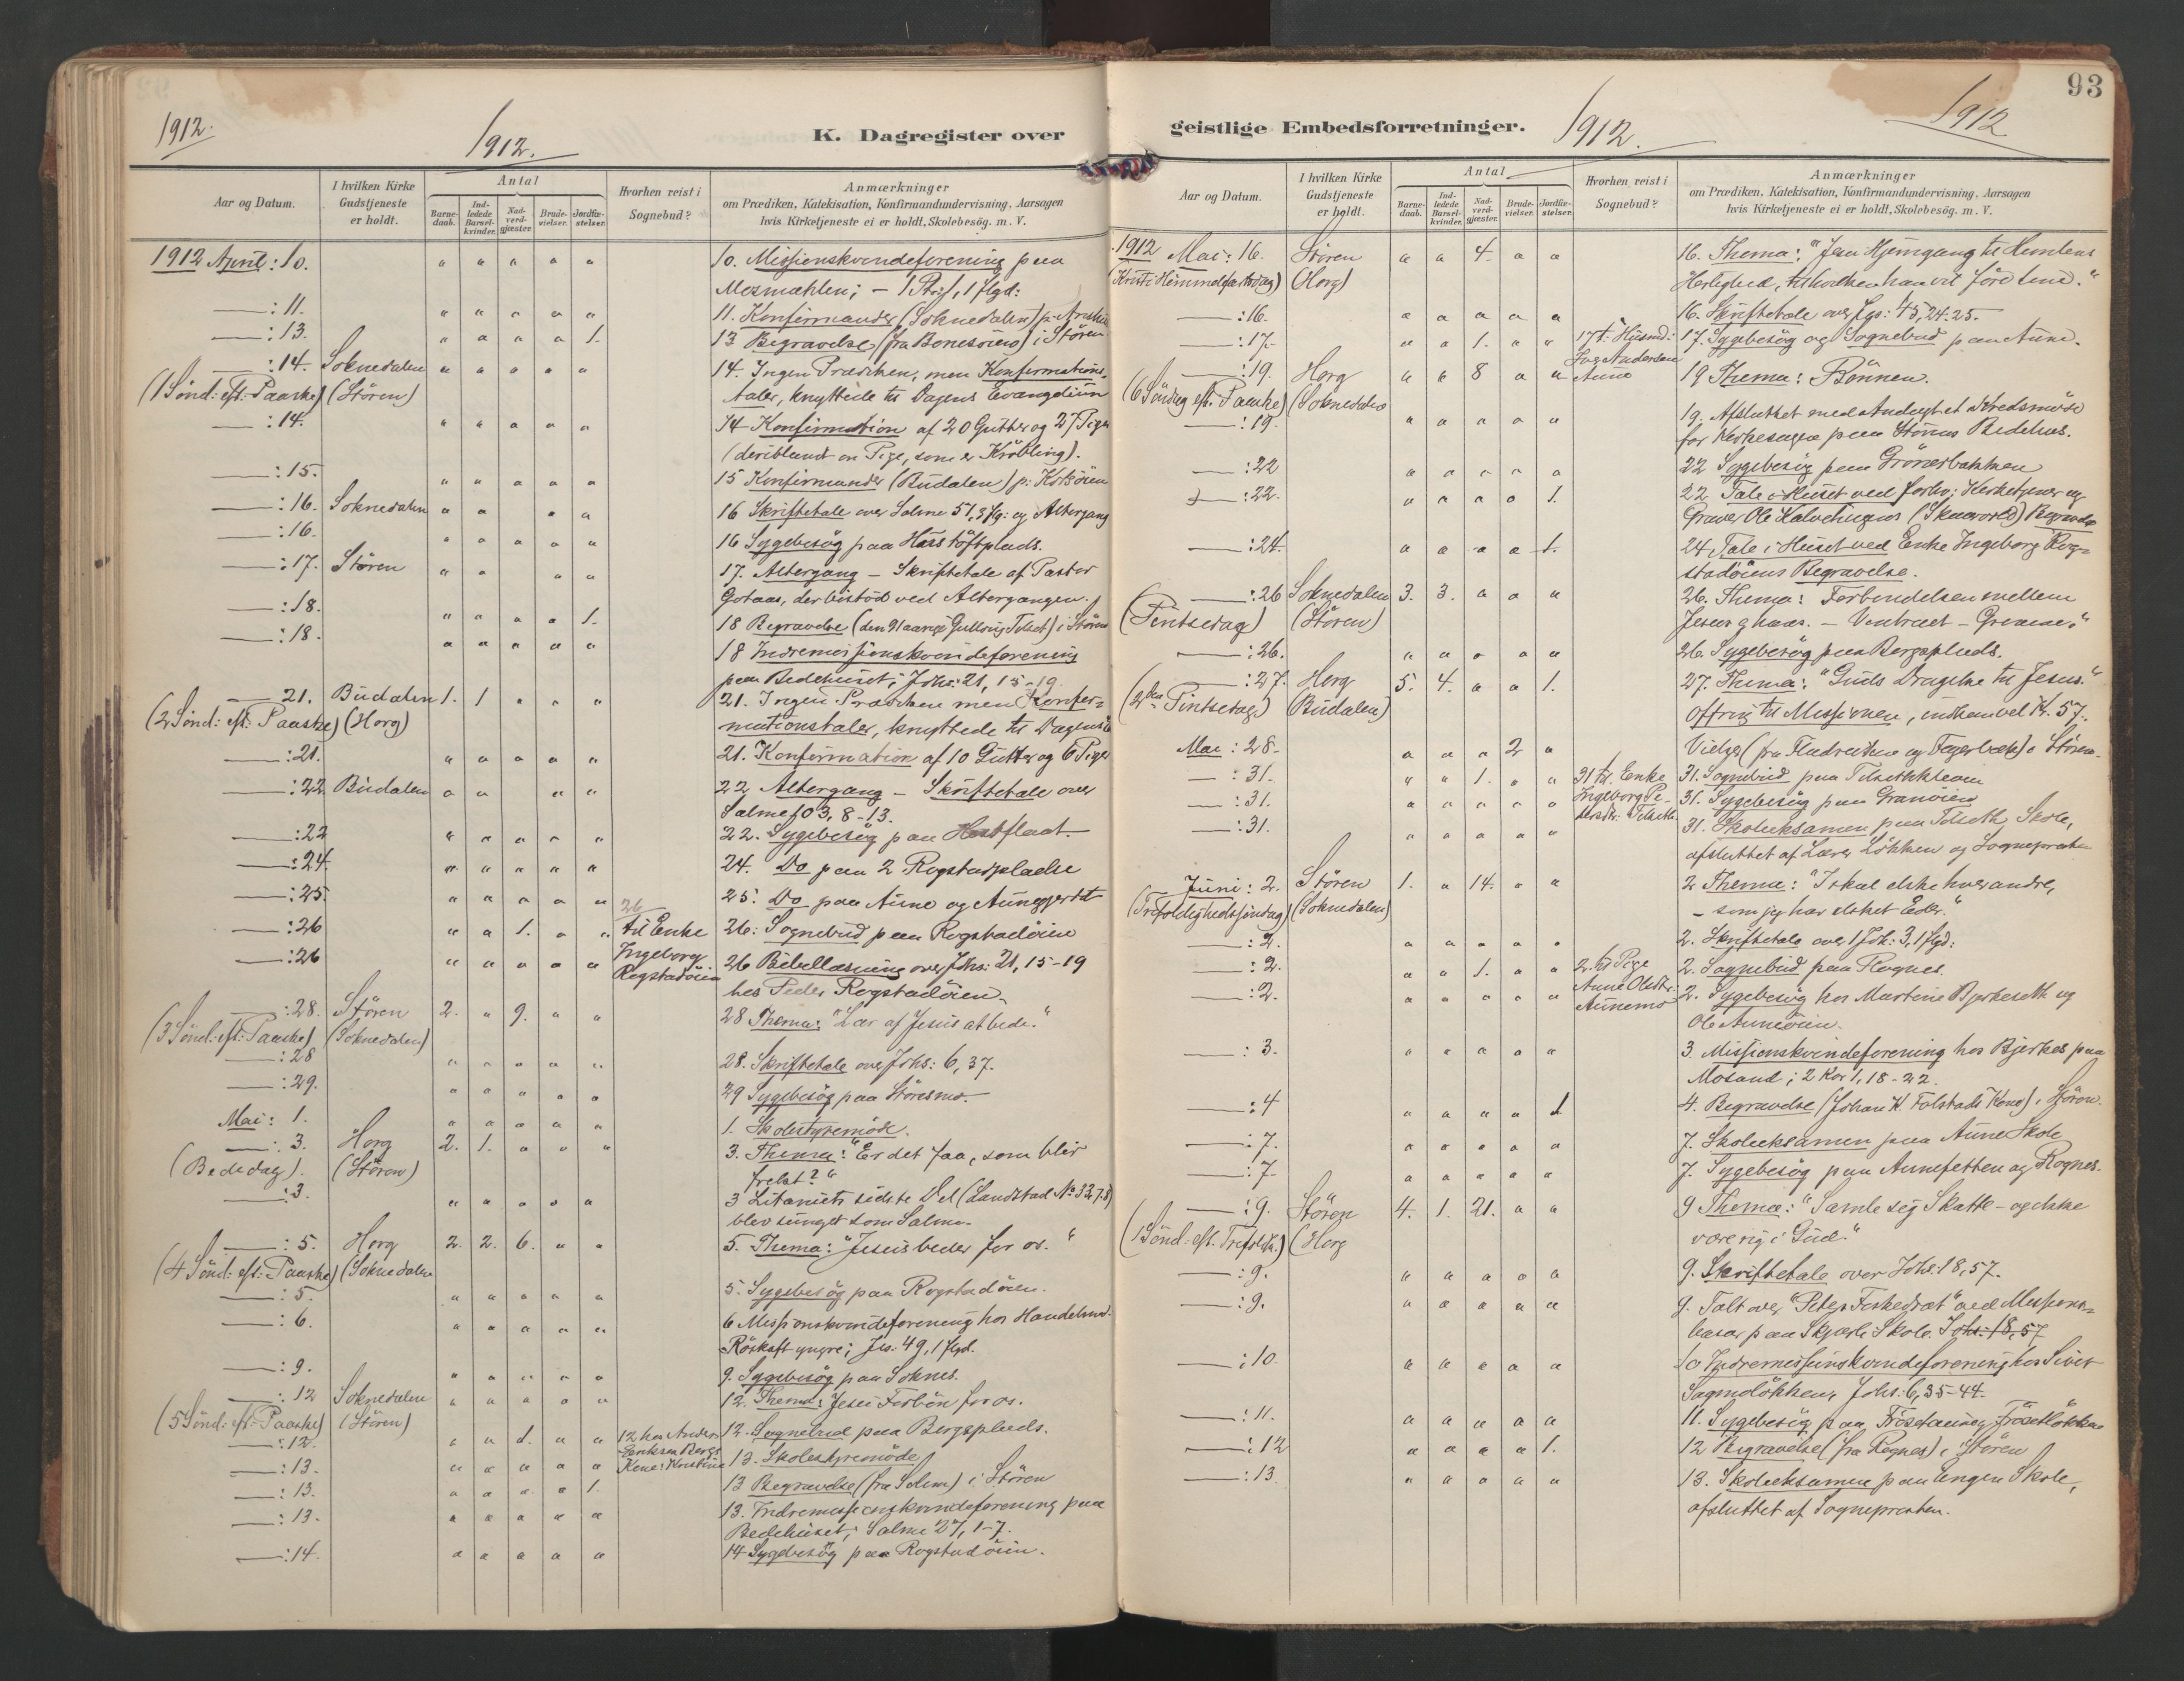 93
1912.
1912.
K. Dagregister over
Aar og Datum.
I hvilken Kirke Gudstjeneste er holdt.
Antal
Barnedaab.
Indledede Barselkvinder.
Nadverdgjæster.
Brudevielser.
Jordfæstelser.
Hvorhen reist i Sognebud?
Anmærkninger
om Prædiken, Katekisation, Konfirmandundervisning, Aarsagen
hvis Kirketjeneste ei er holdt, Skolebesøg. m. V.
1912 April: 10. " " " " " 10. Missionskvindeforening paa
1 flgd:
—: 11. " " " " " 11. Konfirmander (Soknedalen)
—: 13. " " " " 1. 13 Begravelse i Støren
—: 14. Soknedalen " " " " " 14. Ingen Prædiken, men Konfirmations-
(1 Sønd: eft: Paaske) (Støren) taler, knyttede til Dagens Evangelium
—: 14. " " " " " 14 Konfirmation af 20 Gutter og 27 Piger
(deriblandt en Pige, som er Krøbling).
—: 15. " " " " " 15 Konfirmander (Budalen) p: Kotsøien
—: 16. Soknedalen " " " " 16 Skriftetale over Salme 51, 3 flg: og Altergang
—: 16. " " " " " 16 Sygebesøg paa
—: 17. Støren " " " " 17. Altergang – Skriftetale af Pastor
Gotaas, der bistod ved Altergangen.
—: 18. " " " " 1. 18 Begravelse (den 91 aarige ) i Støren
—: 18. " " " " " 18 Indremissionskvindeforening
paa Bedehuset; Johs: 21, 15-19.
— 21. Budalen 1. 1 " " " 21. Ingen Prædiken men Konfir-
(2 Sønd: eft: Paaske) (Horg) mationstaler, knyttede til Dagens
—: 21. " " " " " 21. Konfirmation af 10 Gutter og 6 Piger
—: 22 Budalen " " " " 22 Altergang – Skriftetale over
Salme 103, 8-13.
—: 22 " " " " " 22. Sygebesøg paa
—: 24. " " " " " 24. Do paa 2 Rogstadpladse
—: 25. " " " " " 25: Do paa Aune og
—: 26 " " 1. " " 26 til Enke 26: Sognebud paa Rogstadøien
—: 26 " " " " " Ingeborg Rogstadøien 26 Bibellæsning over Johs: 21, 15-19
hos Peder Rogstadøien.
—: 28. Støren 2. " 9. " " 28 Thema: "Lær af Jesus at bede."
(3 Sønd: eft: Paaske) (Soknedalen)
—: 28 " " " " " 28. Skriftetale over Johs: 6, 37.
—: 29. " " " " " 29 Sygebesøg paa Størensmo.
Mai: 1. " " " " " 1. Skolestyremøde.
—: 3. Horg 2. 1. " " " 3. Thema: "Er det faa, som blir
(Bededag). (Støren) frelst?"
—: 3. " " " " " 3 Litaniets sidste Del (Landstad No 327.8)
blev sunget som Salme.
—: 5. Horg 2. 2. 6. " " 5. Thema: "Jesus beder for os."
(4 Sønd: eft: Paaske) (Soknedalen
—: 5. " " " " " 5. Sygebesøg paa Rogstadøien.
—: 6. " " " " " 6 Missionskvindeforening hos Handelsmd.
Røskaft yngre; Jes. 49, 1 flgd.
—: 9. " " " " " 9. Sygebesøg paa Soknes.
—: 12 Soknedalen " " " " " 12. Thema: Jesu Forbøn for os.
(5 Sønd: eft: Paaske) (Støren)
—: 12. " " 1. " " 12 hos Anders Eriksen Bergs Kone: Kristine 12. Sognebud paa Bergsplads.
—: 13. " " " " " 13. Skolestyremøde
—: 13. " " " " 1. 13 Begravelse (fra Solem) i Støren
—: 13. " " " " " 13. Indremissionskvindeforening paa
Bedehuset; Salme 27, 1-7.
—: 14. " " " " " 14 Sygebesøg paa Rogstadøien.
geistlige Embedsforretninger.
1912.
1912
Aar og Datum.
I hvilken Kirke Gudstjeneste er holdt.
Antal
Barnedaab.
Indledede Barselkvinder.
Nadverdgjæster.
Brudevielser.
Jordfæstelser.
Hvorhen reist i Sognebud?
Anmærkninger
om Prædiken, Katekisation, Konfirmandundervisning, Aarsagen
hvis Kirketjeneste ei er holdt, Skolebesøg. m. V.
1912 Mai: 16. Støren " " 4. " " 16. Thema: "Jesu Hjemgang til Himlens
(Kristi Himmelfartsdag) (Horg) Herlighed, til hvilken han vil føre sine."
—: 16. " " " " " 16. Skriftetale over Jes: 45, 24.25.
—: 17. " " 1. " " 17 t. Husmd: Andersen Aune 17. Sygebesøg og Sognebud paa Aune.
—: 19. Horg " " 8 " " 19 Thema: Bønnen.
(6 Søndag eft. Paaske) (Soknedalen
—: 19. " " " " " 19. Afsluttet med Andagt et Kredsmøde
for Kirkesagen paa Størens Bedehus.
—: 22 " " " " " 22 Sygebesøg paa Grønesbakken
—: 22. " " " " 1. 22 Tale i Huset ved forhv: Kirketjener og
Graver Ole Begravelse
—: 24. " " " " 1. 24 Tale i Huset ved Enke Ingeborg Rog-
stadøiens Begravelse.
—: 26 Soknedalen 3. 3. " " " 26. Thema: Forbindelsen mellem
(Pintsedag) (Støren) Jesus og hans. – Vintræet – Grenene."
—: 26. " " " " " 26. Sygebesøg paa Bergsplads.
—: 27. Horg 5. 4. " " 1. 27. Thema: "Guds Dragelse til Jesus."
(2den Pintsedag) (Budalen) Offring til Missionen, indkom vel Kr. 57.
Mai: 28. " " " 2 " Vielse i Støren.
—: 31. " " 1. " " 31 til Enke Ingeborg Pedersdr: Tilseth 31. Sognebud paa Tilsethkleven
—: 31. " " " " " 31. Sygebesøg paa Granøien
—: 31. " " " " " 31. Skoleeksamen paa Tilseth Skole,
afsluttet af Lærer Løkken og Sognepræsten
Juni: 2. Støren 1. " 14. " " 2 Thema: "I skal elske hverandre,
(Trefoldighedssøndag) (Soknedalen) – som jeg har elsket Eder."
—: 2. " " " " " 2. Skriftetale over 1 Joh: 3, 1 flgd:
—: 2. " " 1. " " 2. til Pige Anne Olsdtr: Aunemo 2. Sognebud paa Rognes.
—: 2. " " " " " 2. Sygebesøg hos Martine Bjerkeseth og
Ole Auneøien.
—: 3. " " " " " 3. Missionskvindeforening hos Bjerkes paa
Mosand; 2 Kor 1, 18-22.
—: 4 " " " " 1 4. Begravelse (Johan K. Folstads Kone) i Støren.
—: 7. " " " " " 7. Skoleeksamen paa Aune Skole
—: 7. " " " " " 7. Sygebesøg paa og Rognes.
—: 9. Støren 4. 1. 21. " " 9 Thema: "Samle sig Skatte – og ikke
(1 Sønd: eft. Trefoldh.) (Horg være rig i Gud."
—: 9. " " " " " 9. Skriftetale over Johs: 18, 57.
—: 9. " " " " " 9. Talt over "Peters Fiskedræt" ved Missions-
basar paa Skjærli Skole. Johs: 18, 57
—: 10. " " " " " 10 Indremissionskvindeforening hos Sivert
Sagmoløkken, Johs: 6, 35-44.
—: 11. " " " " " 11. Sygebesøg paa Frøsetaune og Frøsetløkken
—: 12 " " " " 1. 12 Begravelse (fra Rognes) i Støren
—: 13. " " " " " 13. Skoleeksamen paa Engen Skole,
afsluttet af Sognepræsten.